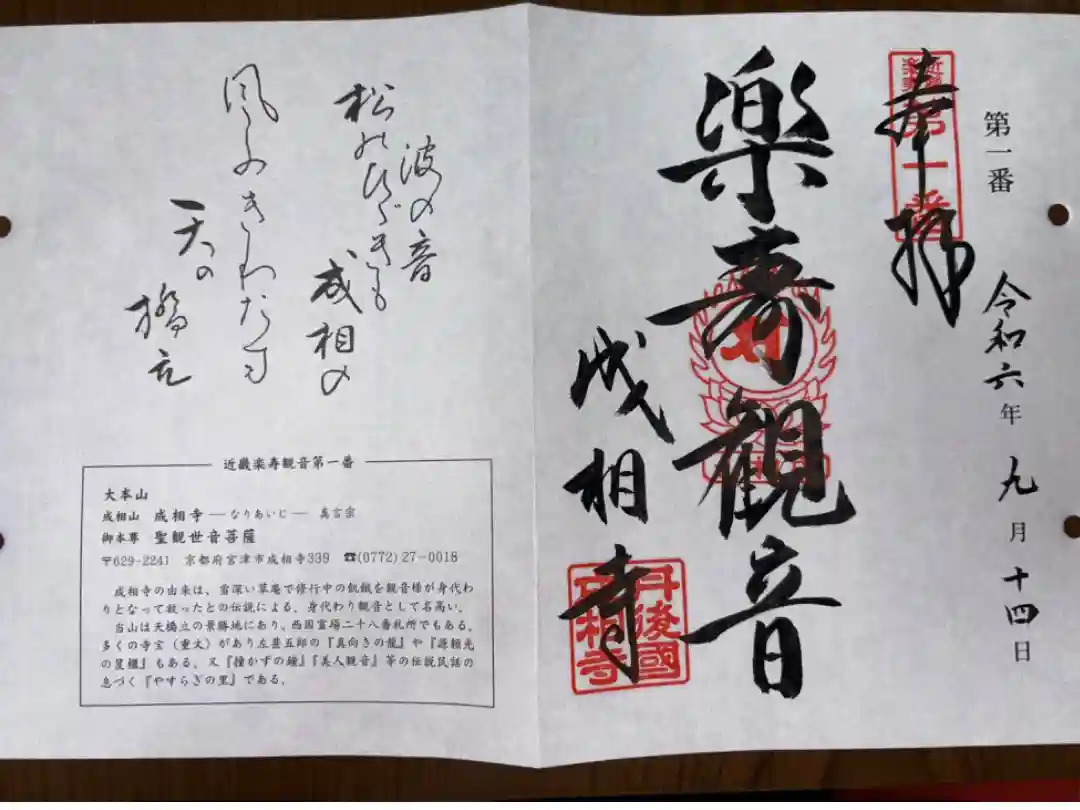 第一番
令和六年九月十四日
奉拝
楽寿観音
成相寺
丹後國
成相寺
波の音
松のひゞきも
成相の
風ふきわたす
天の
橋立
近畿楽寿観音第一番
大本山
成相山 成相寺―なりあいじ― 真言宗
御本尊 聖観世音菩薩
〒629-2241 京都府宮津市成相寺339 ☎(0772)27-0018
成相寺の由来は、雪深い草庵で修行中の飢餓を観音様が身代わ
りとなって救ったとの伝説による。身代わり観音として名高い。
当山は天橋立の景勝地にあり、西国霊場二十八番札所でもある。
多くの寺宝(重文)があり左甚五郎の『真向きの龍』や『源頼光
の冥櫃』もある。又『撞かずの鐘』『美人観音』等の伝説民話の
息づく『やすらぎの里』である。